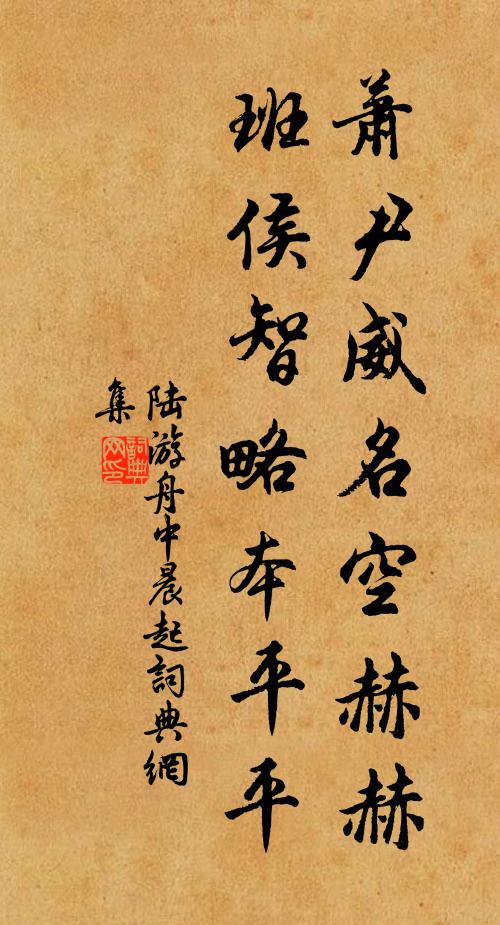 蕭尹威名空赫赫
班侯智略本平平
陸游舟中晨起詞典網
集